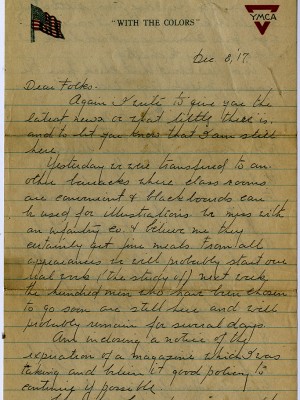 "WITH THE COLORS"
YMCA
Dec 8, 17.
Dear Folks:
Again I write to give you the
latest news or what little there is.
and to let you know that I am still
here.
Yesterday we were transfered to an-
other barracks where class rooms
are convenient & black boards can
be used for illustrations. We mess with
an infantry Co. & believe me they
certainly get fine meals from all
appearances we will probably start our
real work (the study of) next week
the hundred men who have been chosen
to go soon are still here and will
probably remain for several days.
Am inclosing a notice of the
expiration of a magazine which I was
taking and believe it good policy to
continue if possible.